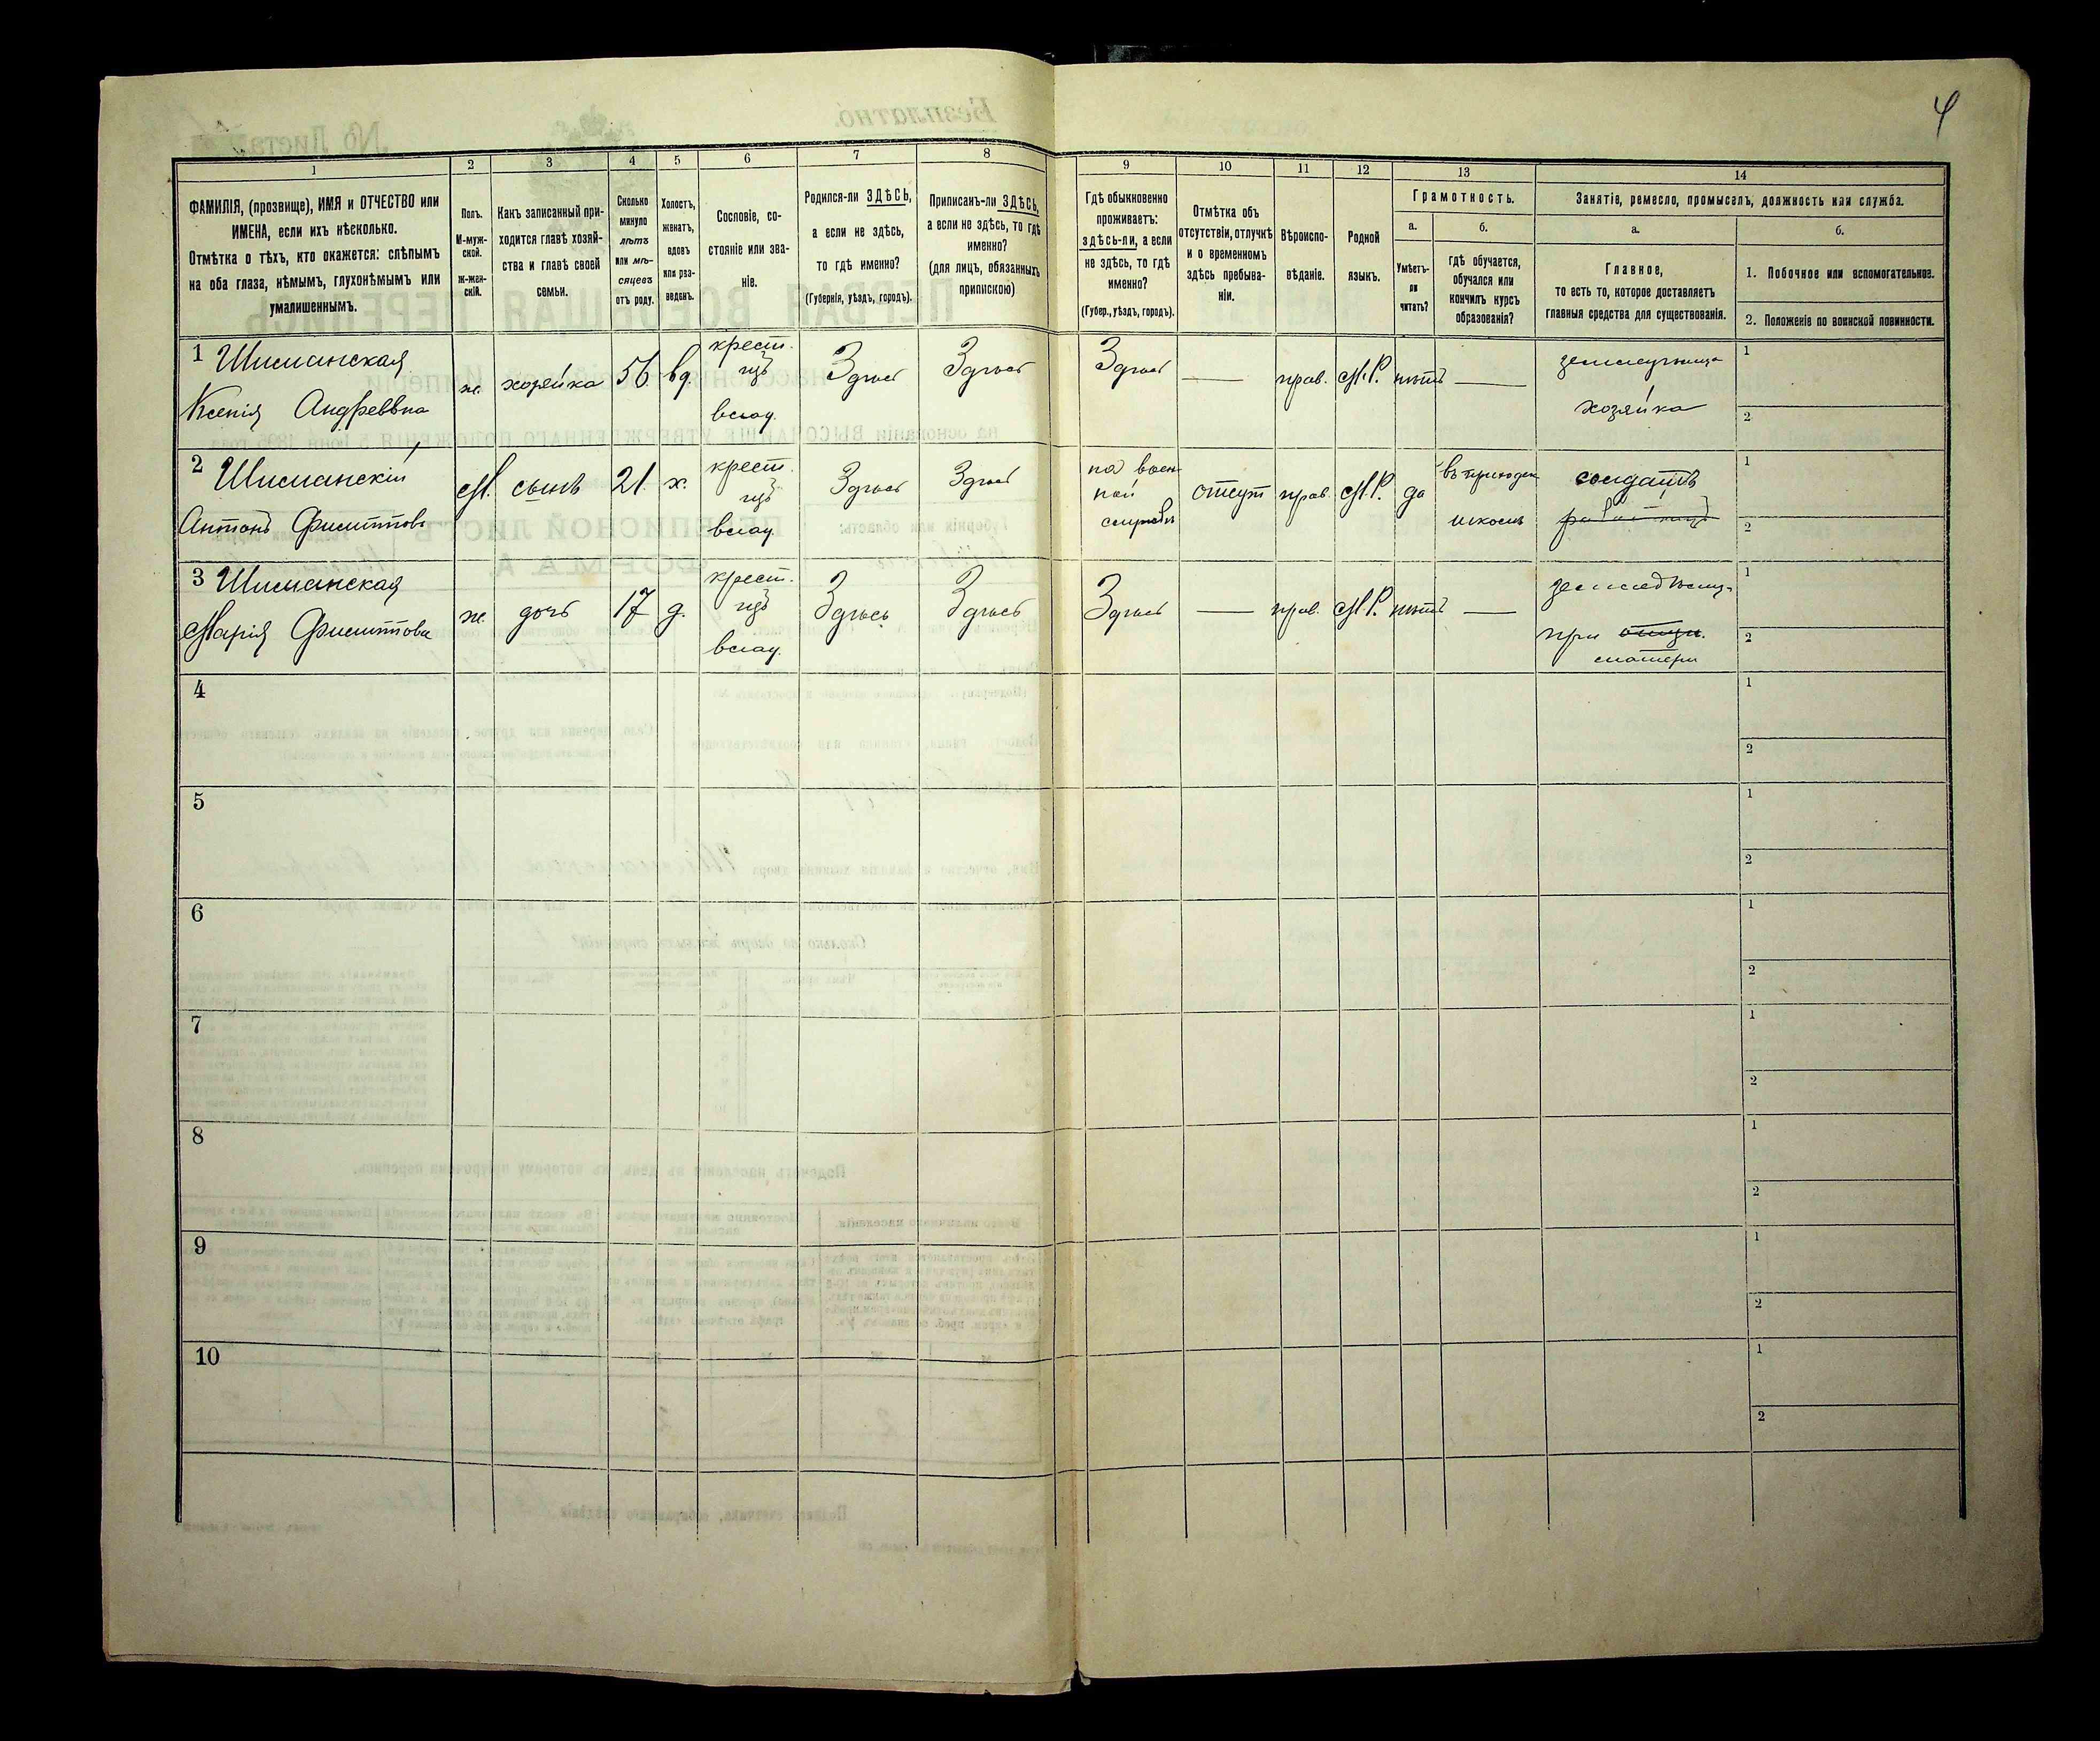 4
1
2
3
4
5
6
7
8
9
10
11
12
13
14
ФАМИЛІЯ, (прозвище), ИМЯ и ОТЧЕСТВО или
ИМЕНА, если ихъ нѣсколько.
Отмѣтка о тѣхъ, кто окажется: слѣпымъ
на оба глаза, нѣмымъ, глухонѣмымъ или
умалишеннымъ.
Полъ.
М-муж-
ской.
ж-жен-
скій.
Какъ записанный при-
ходится главѣ хозяй-
ства и главѣ своей
семьи.
Сколько
минуло
лѣтъ
или мѣ-
сяцевъ
отъ роду.
Холостъ,
женатъ,
вдовъ
или раз-
веденъ.
Сословіе, со-
стояніе или зва-
ніе.
Родился-ли ЗДѢСЬ,
а если не здѣсь,
то гдѣ именно?
(Губернія, уѣздъ, городъ).
Приписанъ-ли ЗДѢСЬ,
а если не здѣсь, то гдѣ
именно?
(для лицъ, обязанныхъ
припискою)
Гдѣ обыкновенно
проживаетъ:
здѣсь-ли, а если
не здѣсь, то гдѣ
именно?
(Губер., уѣздъ, городъ).
Отмѣтка объ
отсутствіи, отлучкѣ
и о временномъ
здѣсь пребыва-
ніи.
Вѣроиспо-
вѣданіе.
Родной
языкъ.
Грамотность.
а.
Умѣетъ-
ли
читать?
б.
гдѣ обучается,
обучался или
кончилъ курсъ
образованія?
Занятіе, ремесло, промыселъ, должность или служба.
а.
Главное,
то есть то, которое доставляетъ
главныя средства для существованія.
б.
1. Побочное или вспомогательное.
2. Положеніе по воинской повинности.
1 Шиманская
Ксенія Андреевна
ж.
хозяйка
56
вд.
крест.
изъ
влад.
Здѣсь
Здѣсь
Здѣсь
—
прав.
М.Р.
нѣтъ
—
хозяйка
1
2
2 Шиманскій
Антонъ Филипповъ
М.
сынъ
21.
х.
крест.
изъ
влад.
Здѣсь
Здѣсь
на воен
ной
службѣ
отсут
прав.
М.Р.
да
въ приходск
школѣ
солдатъ
1
2
3 Шиманская
Марія Филиппова
ж.
дочь
17
д.
крест.
изъ
влад.
Здѣсь
Здѣсь
Здѣсь
—
прав.
М.Р.
нѣтъ
—
при отцѣ.
матери
1
2
4
1
2
5
1
2
6
1
2
7
1
2
8
1
2
9
1
2
10
1
2